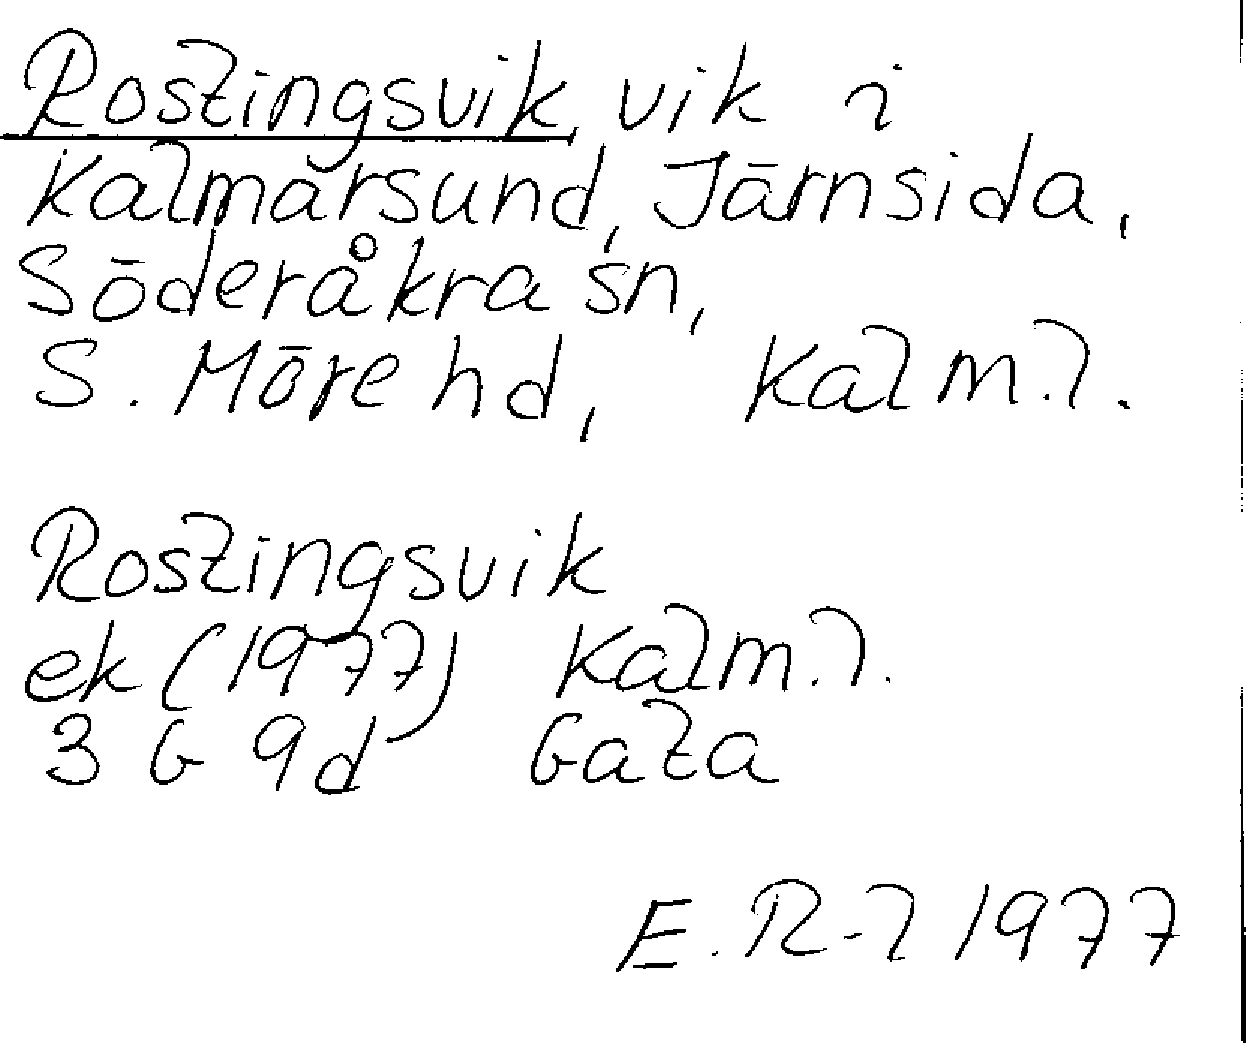 Rostingsvik, vik i
Kalmarsund, Järnsida,
Söderåkra sn,
S. Möre hd, Kalm.l.
Rostingsvik
ek (1977) Kalm.l.
3 G 9d Gata
E.R-l 1977